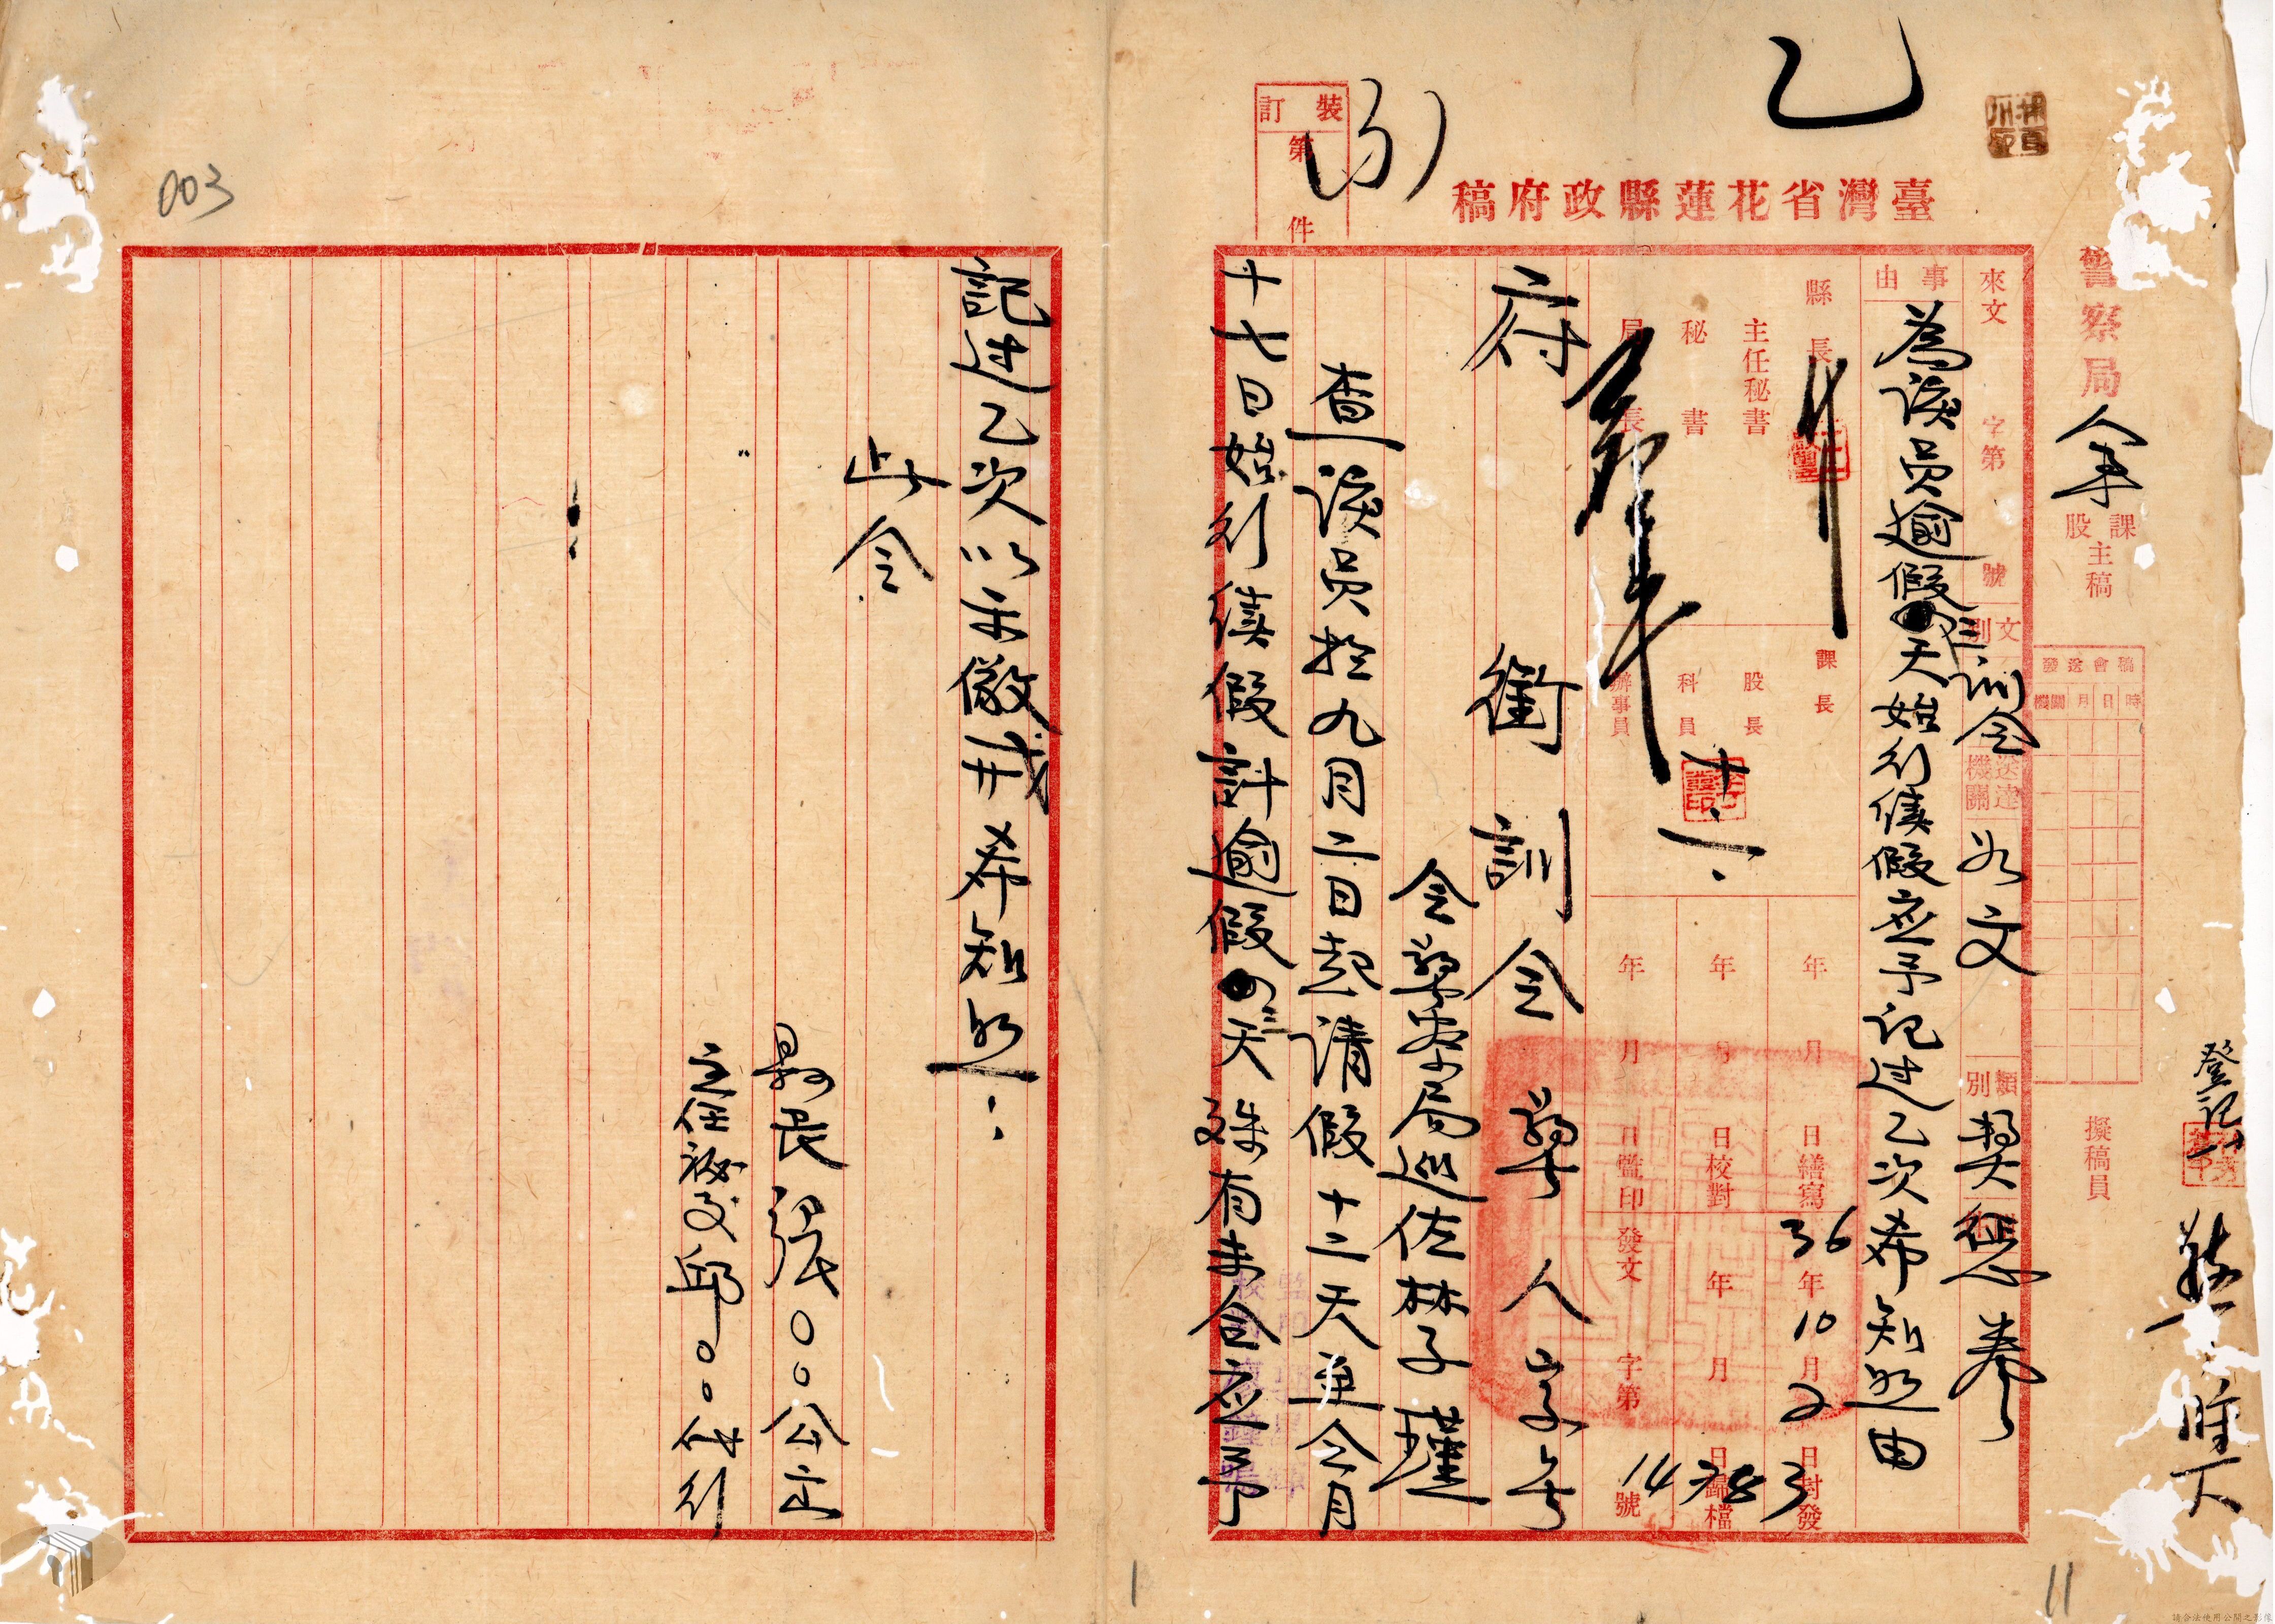 乙
臺灣省花蓮縣政府稿
裝訂第件
(3)
警察局
余
課
股
主稿
擬稿員
登記
稿會送發
時日月機關
來文 字第 號
文別 訓令
送達機關 如文
類別 獎懲 卷
事由
為該員逾假三天始行續假应予記过乙次希知照由
縣長
主任秘書
秘書
局長
課長
股長
科員
辦事員
十、二、
年月日繕寫
年月日校對
年月日監印
36年10月2日封發
年月日歸檔
發文 字第 號
14783
府銜訓令 警人字
令警察局巡佐林子瑾
查該員於九月二日起請假十二天至今月
十七日始行續假計逾假三天殊有未合应予
記过乙次以示儆戒希知照
此令
縣長張○○公出
主任秘書邱○○代行
003
1
11
請合法使用公開之影像